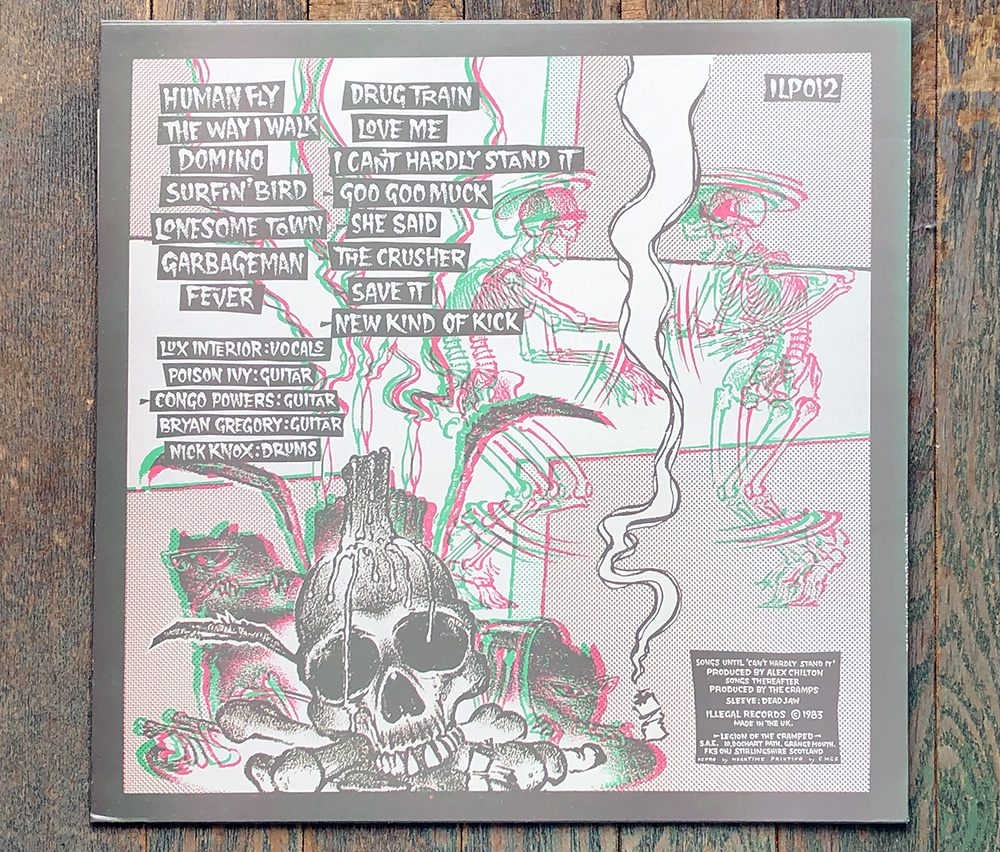 HUMAN FLY
THE WAY I WALK
DOMINO
SURFIN' BIRD
LONESOME TOWN
GARBAGEMAN
FEVER
DRUG TRAIN
LOVE ME
I CAN'T HARDLY STAND IT
GOO GOO MUCK
SHE SAID
THE CRUSHER
SAVE IT
NEW KIND OF KICK
ILP012
LUX INTERIOR: VOCALS
POISON IVY: GUITAR
CONGO POWERS: GUITAR
BRYAN GREGORY: GUITAR
NICK KNOX: DRUMS
SONGS UNTIL 'CAN'T HARDLY STAND IT'
PRODUCED BY ALEX CHILTON
SONGS THEREAFTER
PRODUCED BY THE CRAMPS
SLEEVE: DEADJAW
ILLEGAL RECORDS © 1983
MADE IN THE UK.
-LEGION OF THE CRAMPED-
S.A.E. 10, DOCHART PATH, GRANGEMOUTH.
FK3 0HJ STIRLINGSHIRE SCOTLAND
REPRO by MEANTIME PRINTING by CMCS